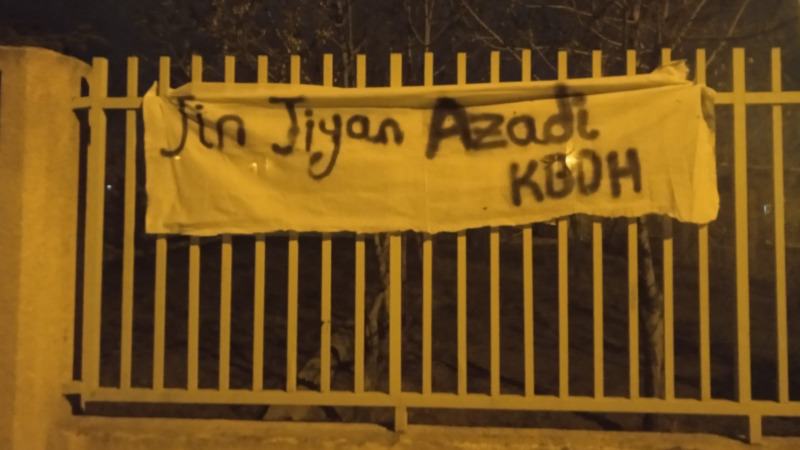 Jin Jiyan Azadi
KBDH